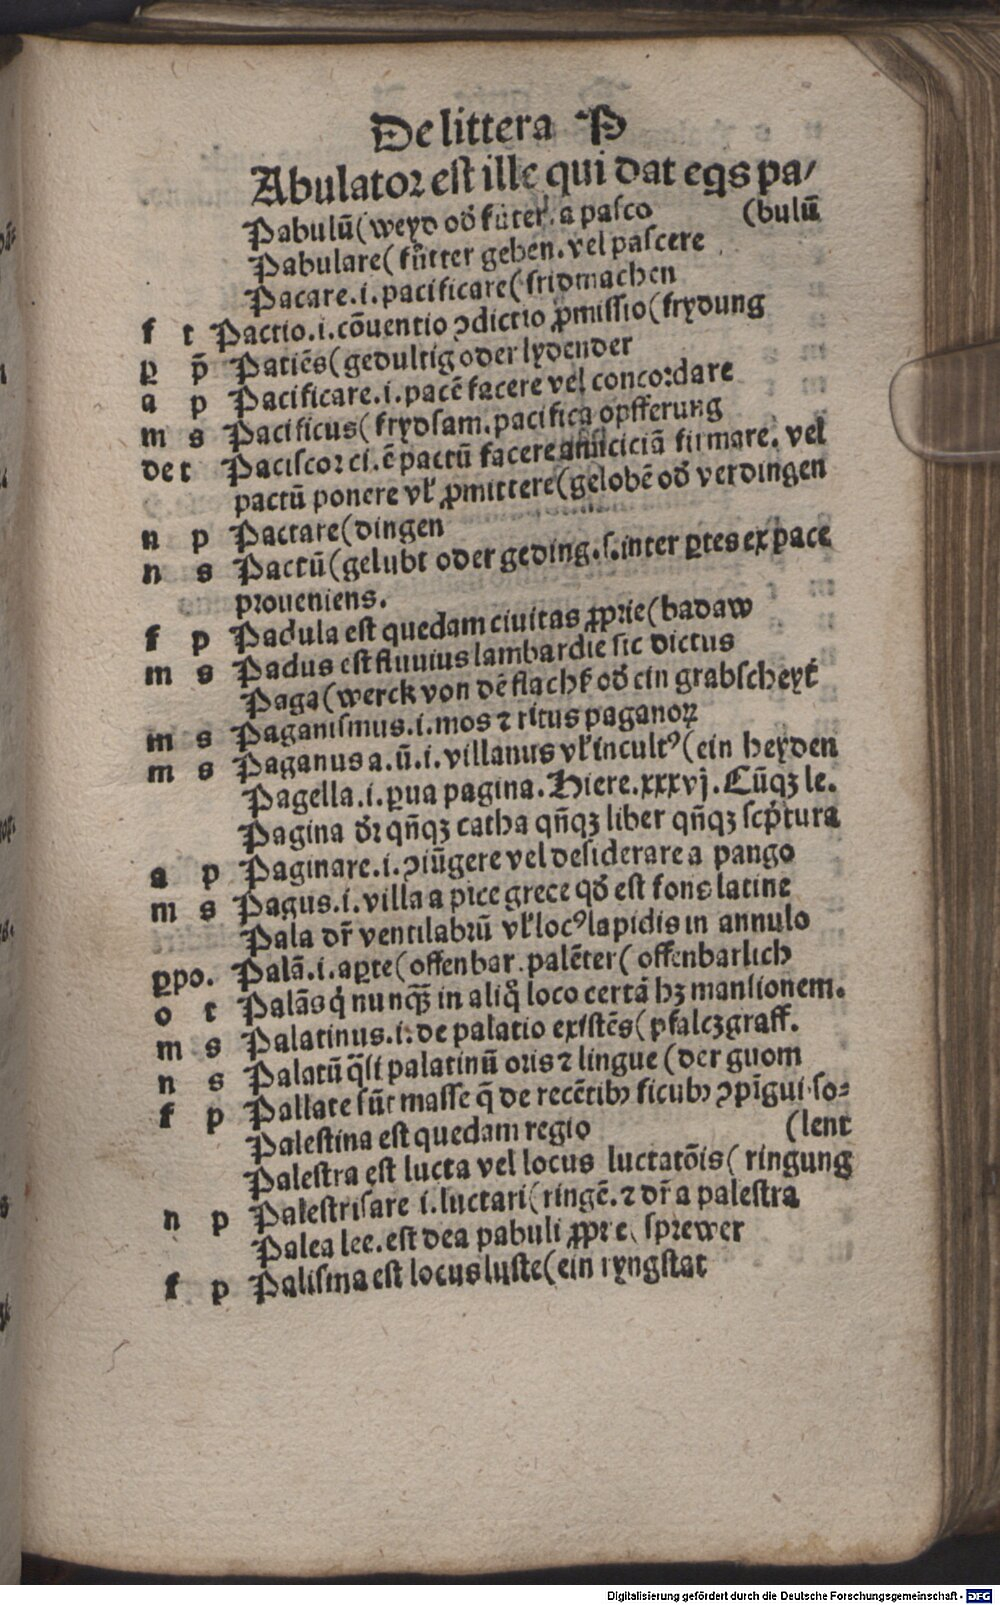 De littera P
Abulator est ille qui dat eqs pa/
Pabulū(weyd od̕ fůter. a pasco (bulū
Pabulare( fůtter geben. vel pascere
Pacare.i.pacificare(fridmachen
f t Pactio.i.cōuentio ꝯdictio ꝓmissio(frydung
ꝑ p̄ Patiēs(gedultig oder lydender
a p Pacificare.i.pacē facere vel concordare
m s Pacificus( frydsam.pacifica opfferung
de t Paciscor ci.ē pactū facere amiciciā firmare. vel
pactū ponere vl̕ ꝓmittere(gelobē od̕ verdingen
n p Pactare(dingen
n s Pactū(gelubt oder geding.s.inter ꝑtes ex pace
proueniens.
f p Padula est quedam ciuitas ꝓprie(badaw
m s Padus est fluuius lambardie sic dictus
Paga(werck von dē flachs od̕ ein grabscheyt
m s Paganismus.i.mos ⁊ ritus paganoꝝ
m s Paganus a.ū.i.villanus vl̕ incultꝰ(ein heyden
Pagella.i.ꝑua pagina.Hiere.xxxvj.Cūqꝫ le.
Pagina dr̄ qn̄qꝫ catha qn̄qꝫ liber qn̄qꝫ scp̄tura
a p Paginare.i.ꝯiūgere vel desiderare a pango
m s Pagus.i.villa a pice grece qd̕ est fons latine
Pala dr̄ ventilabrū vl̕ locꝰ lapidis in annulo
ꝑpo. Palā.i.aꝑte(offenbar.palēter( offenbarlich
o t Palās q̇ nunqȝ̄ in aliq̊ loco certā hꝫ mansionem.
m s Palatinus.i.de palatio existēs(pfalczgraff.
n s Palatū q̄si palatinū oris ⁊ lingue (der guom
f p Pallate sūt masse q̄ de recētibꝫ ficubꝫ ꝯpīgui so⸗
Palestina est quedam regio (lent
Palestra est lucta vel locus luctatōis( ringung
n p Palestrisare i.luctari(ringē.⁊ dr̄ a palestra
Palea lee.est dea pabuli ꝓprie( sprewer
f p Palisma est locus luste(ein ryngstat
Digitalisierung gefördert durch die Deutsche Forschungsgemeinschaft - DFG